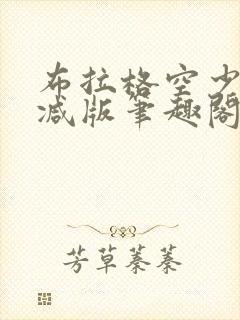 布拉格空少
减版笔趣阁
芳草蓁蓁